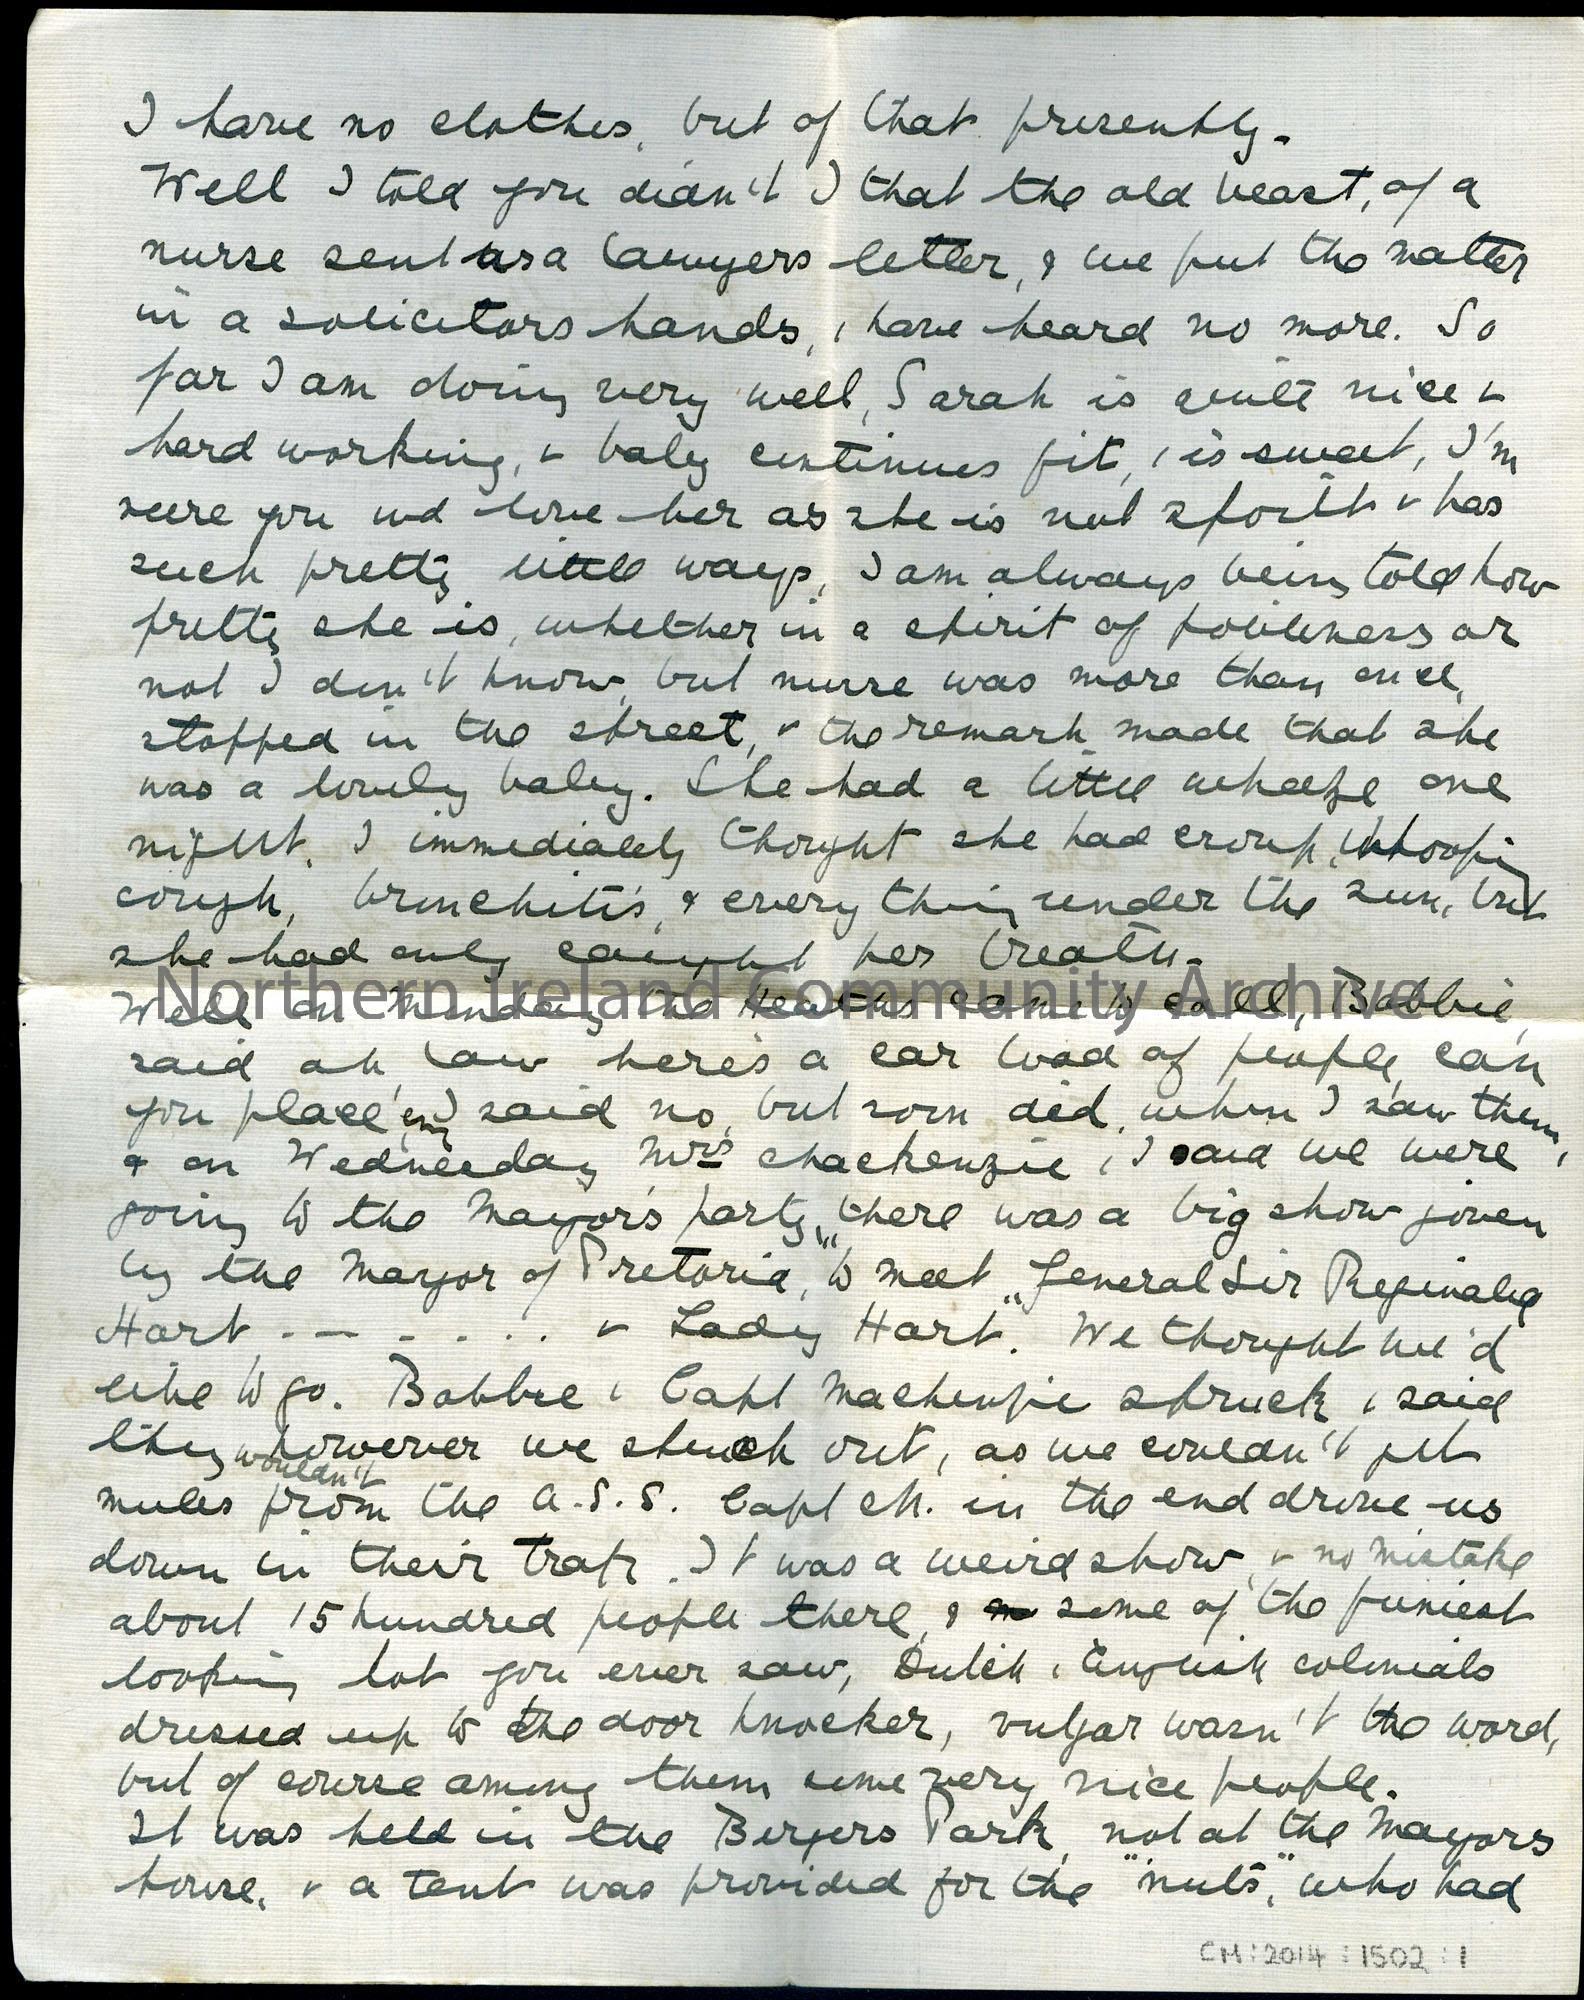 I have no clothes, but of that presently.
Well I told you didn't I that the old beast, of a
nurse sent us a lawyers letter, & we put the matter
in a solicitors hands, & have heard no more. So
far I am doing very well, Sarah is quite nice &
hard working, & baby continues fit, & is sweet, I'm
sure you wd love her as she is not spoilt & has
such pretty little ways, I am always being told how
pretty she is, whether in a spirit of politeness or
not I don't know, but nurse was more than once,
stopped in the street, & the remark made that she
was a lovely baby. She had a little wheeze one
night, I immediately thought she had croup, whooping
cough, bronchitis, & every thing under the sun, but
she had only caught her breath.
Well on Monday the Heaths came to call, Bobbie,
said oh law here's a car load of people, can
you place 'em, I said no, but soon did, when I saw them,
& on Wednesday Mrs Mackenzie, & I said we were
going to the Mayor's party, there was a big show given
by the Mayor of Pretoria, "to meet "General Sir Reginald
Hart - - - . . . . & Lady Hart". We thought we'd
like to go. Bobbie & Capt Mackenzie struck, & said
they wouldn't however we stuck out, as we couldn't get
mules from the A.S.S. Capt M. in the end drove us
down in their trap. It was a weird show, & no mistake
about 15 hundred people there, & some of the funiest
looking lot you ever saw, Dutch & English colonials
dressed up to the door knocker, vulgar wasn't the word,
but of course among them some very nice people.
It was held in the Burgers Park, not at the Mayors
house, & a tent was provided for the "nuts", who had
CM:2014:1502:1
Northern Ireland Community Archive